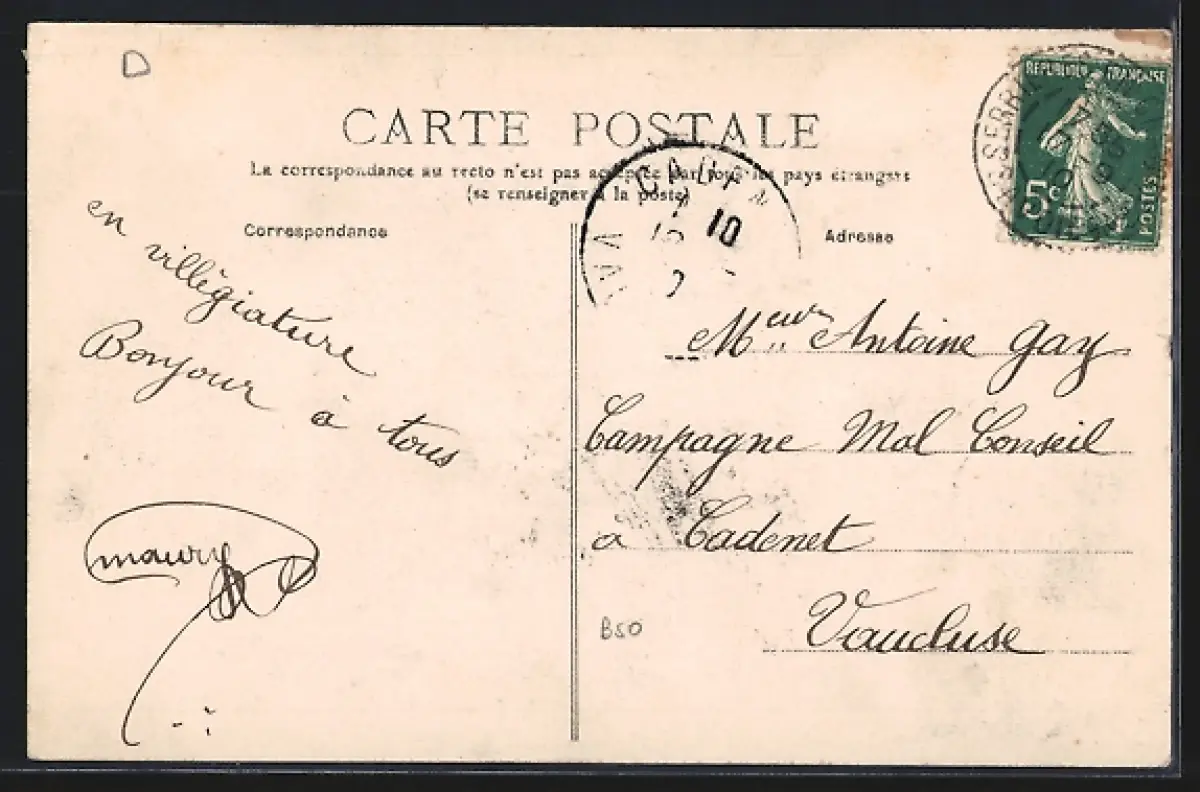 D
CARTE POSTALE
La correspondance au recto n'est pas acceptée par tous les pays étrangers
(se renseigner à la poste)
Correspondance
Adresse
REPUBLIQUE FRANÇAISE
5c
POSTES
10
en villégiature
Bonjour à tous
maury
Meur Antoine Gay
Campagne Mal Conseil
à Cadenet
Vaucluse
B50